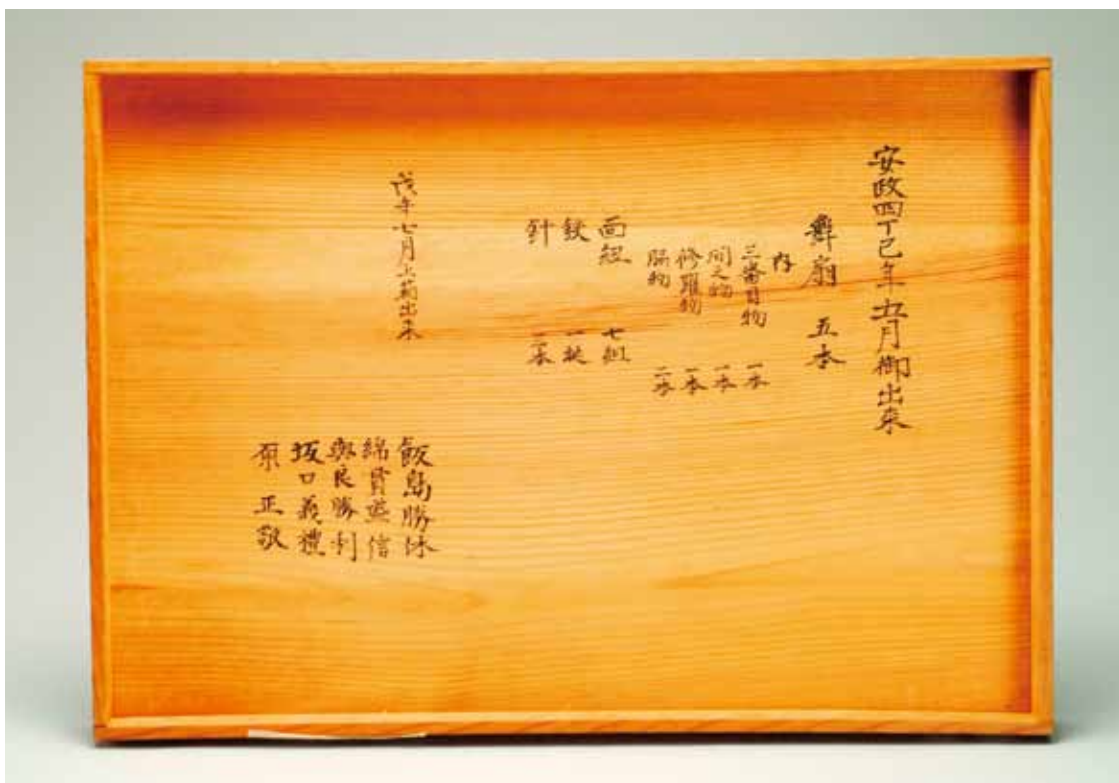 安政四丁巳年五月御出来
舞扇 五本
内
三番目物 一本
間之物 一本
修羅物 一本
脇物 二本
面紐 七組
鋏 一挺
針 二本
戊午七月上箱出来
飯島勝休
綿貫 信
與良勝利
坂口義禮
原 正敬